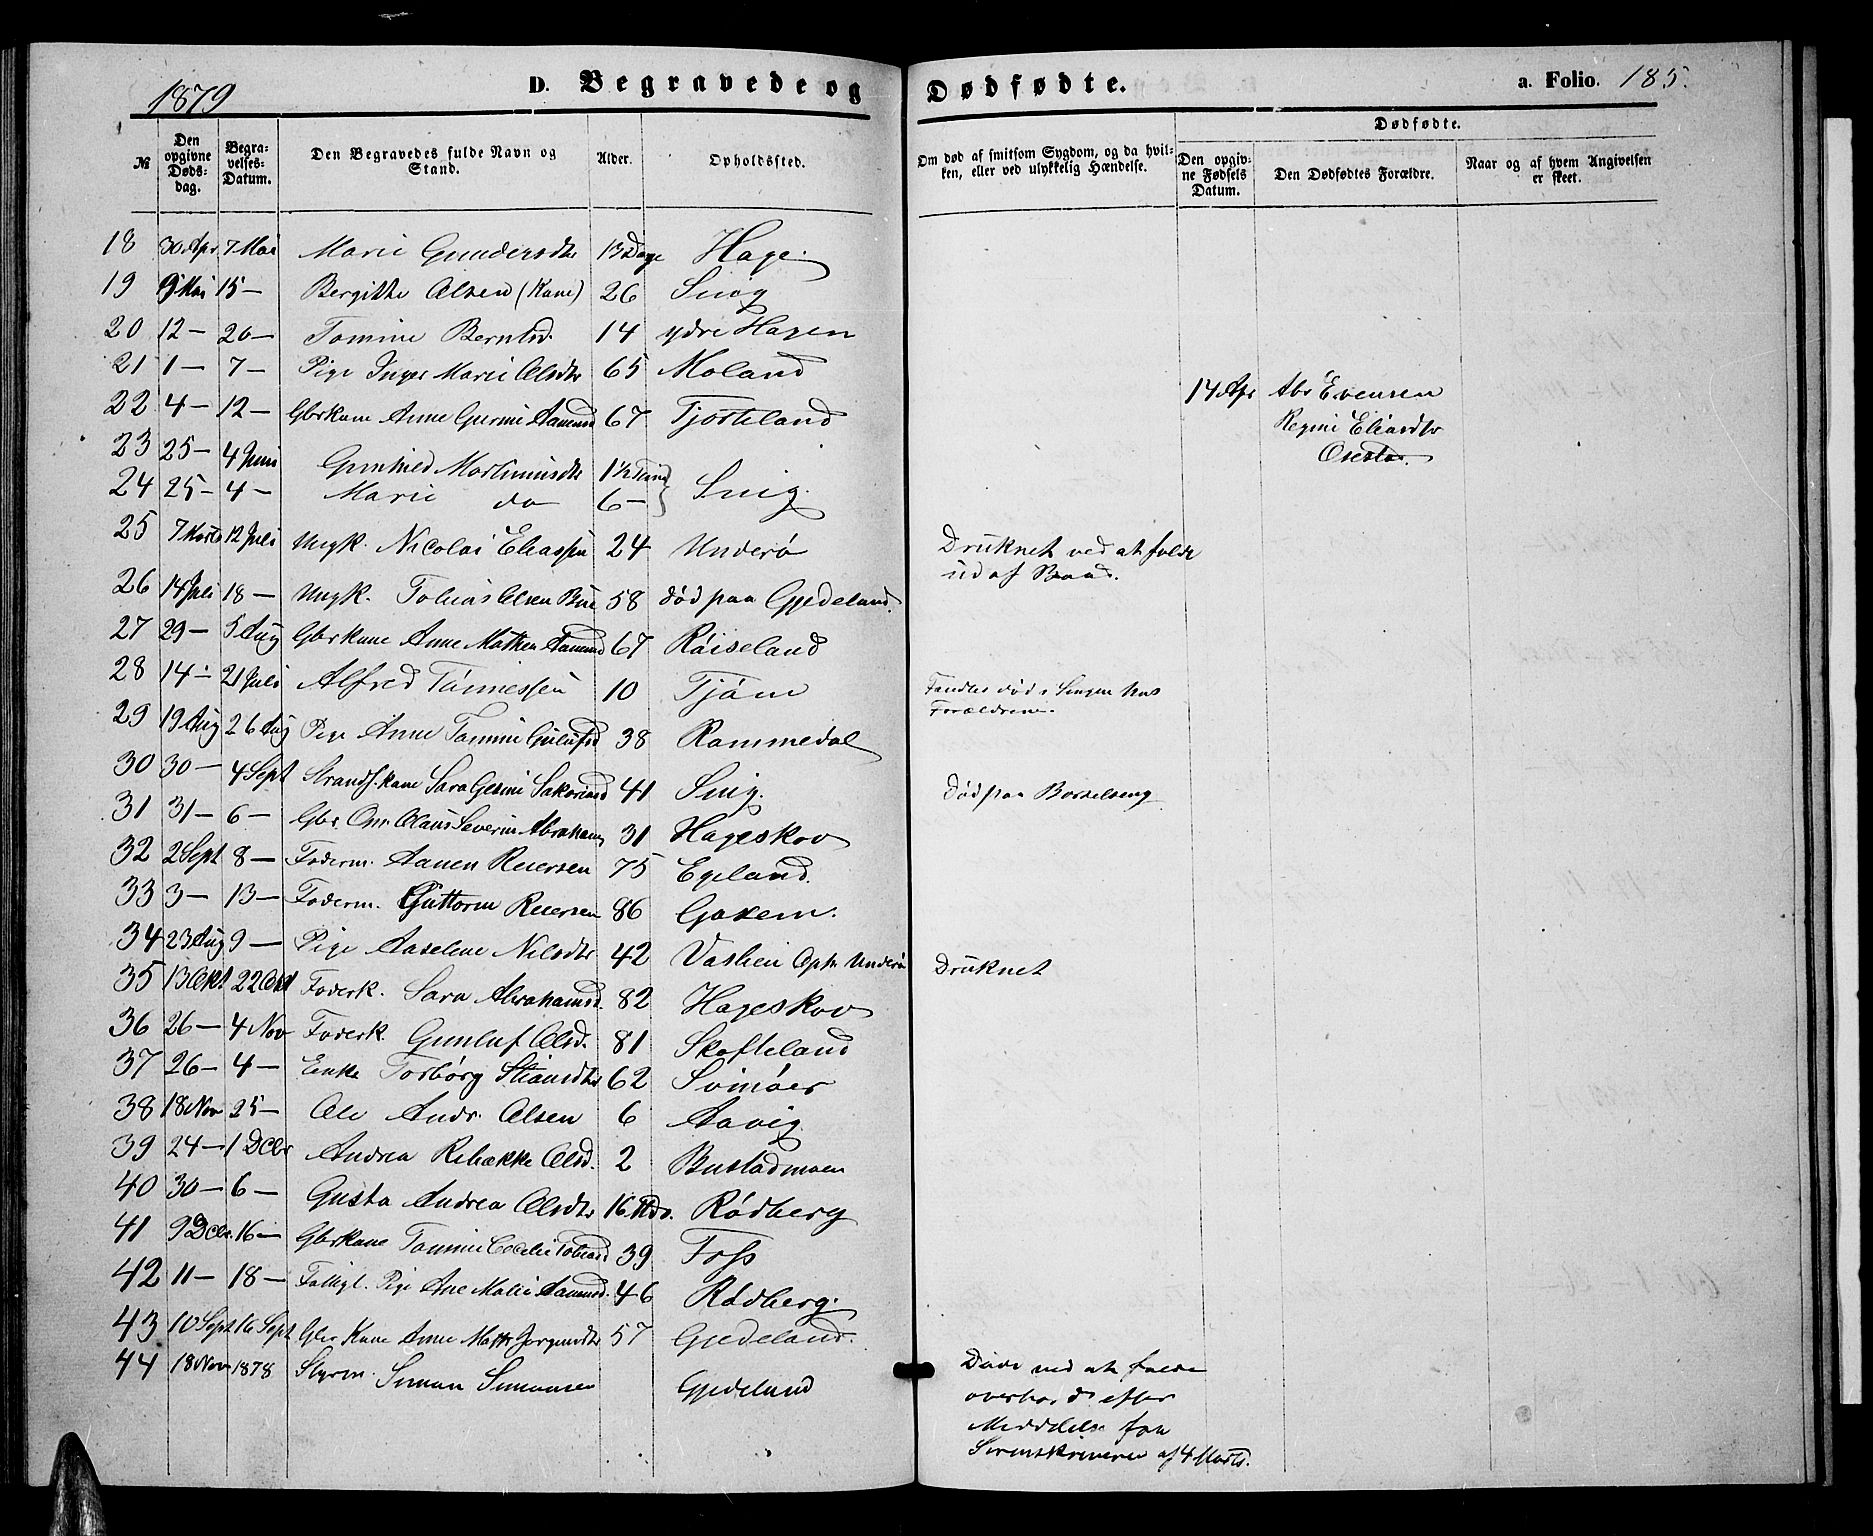 1879 D. Begravede og Dødfødte. a. Folio. 185.
№ Den opgivne Dødsdag. Begravelses-Datum. Den Begravedes fulde Navn og Stand. Alder. Opholdssted. Om død af smitsom Sygdom, og da hvilken, eller ved ulykkelig Hændelse. Dødfødte. Den opgivne Fødsels Datum. Den Dødfødtes Forældre. Naar og af hvem Angivelsen er skeet.
18 30 Apr 7 Mai Marie Gundersdtr 13 Dage Hage.
19 9 Mai 15 — Bergitte Olsen (Kone) 26 Snig
20 12 — 20 — Tomine Berntsd. 14 ydre Hagen
21 1 — 7 — Pige Inger Marie Olsdtr 65 Moland
22 4 — 12 — Gbrkone Anne Gurine Aanensd 67 Tjosteland 14 Apr Abr Evensen
Regine Eliasdtr
23 25 — 4 Juni Gunhild Martinusdtr 1½ Time
24 25 — 4 — Marie do 6 — Snig
25 7 Marts 12 Juli Ungk. Nicolai Eliassen 24 Underø Druknet ved at falde
ud af Baad.
26 14 Juli 18 — Ungk. Tobias Olsen Bue 58 død paa Gjedeland.
27 29 — 5 Aug Gbrkone Anne Mathea Aanensd 67 Røiseland
28 14 — 21 Juli Alfred Tønnessen 10 Tjøm Fandtes død i Sengen hos
Forældrene.
29 19 Aug 26 Aug Pige Anne Tomine Gulufsd 38 Rammedal
30 30 — 4 Sept Strands.kone Sara Gesine Sakariasd 41 Snig. død paa
31 31 — 6 — Gbr. Olaus Severin Abrahams 31 Hageskov
32 2 Sept 8 — Foderm. Aanen Reiersen 75 Egeland.
33 3 — 13 — Foderm. Guttorm Reiersen 86 Goxem.
34 23 Aug 9 — Pige Aaselene Nilsdtr 42 Oph. Underø Druknet
35 13 Okt 22 Okt Foderk. Sara Abrahamsd. 82 Hageskov
36 26 — 4 Nov Foderk. Gunluf Olsd. 81 Skofteland
37 26 — 4 — Enke Torborg Stiansdtr 62 Svinøer
38 18 Nov 25 — Ole Andr. Olsen 6 Aavig
39 24 — 1 Dcbr Andrea Rebækka Olsd. 2 Bustadmoen
40 30 — 6 — Gusta Andrea Olsdtr 16 Mdr. Rødberg
41 9 Dcbr. 16 — Gbrkone Tomine Cecilie Tobiasd 39 Foss
42 11 — 18 — Fattigl. Pige Ane Malie Aanensd. 46 Rødberg.
43 10 Sept 16 Sept Gbr Kone Anne Jørgensdtr 57 Gjedeland.
44 18 Nov 1878 Styrm. Simon Simonsen Gjedeland Døde ved at falde
overbord efter
Meddelse fra
Sorenskriveren af 4 Marts.